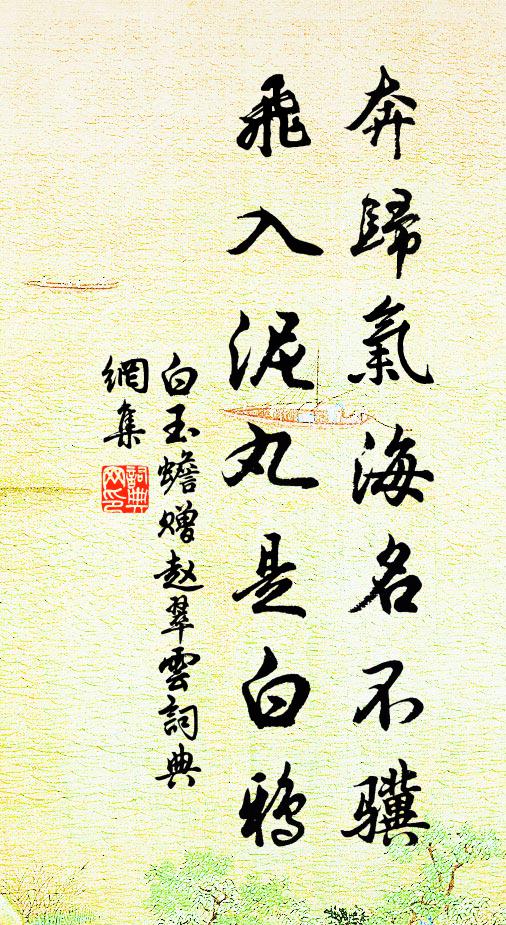 奔歸氣海名不骥
飛入泥丸是白鴉
白玉蟾赠赵翠雲詞典
網集
詞典網印